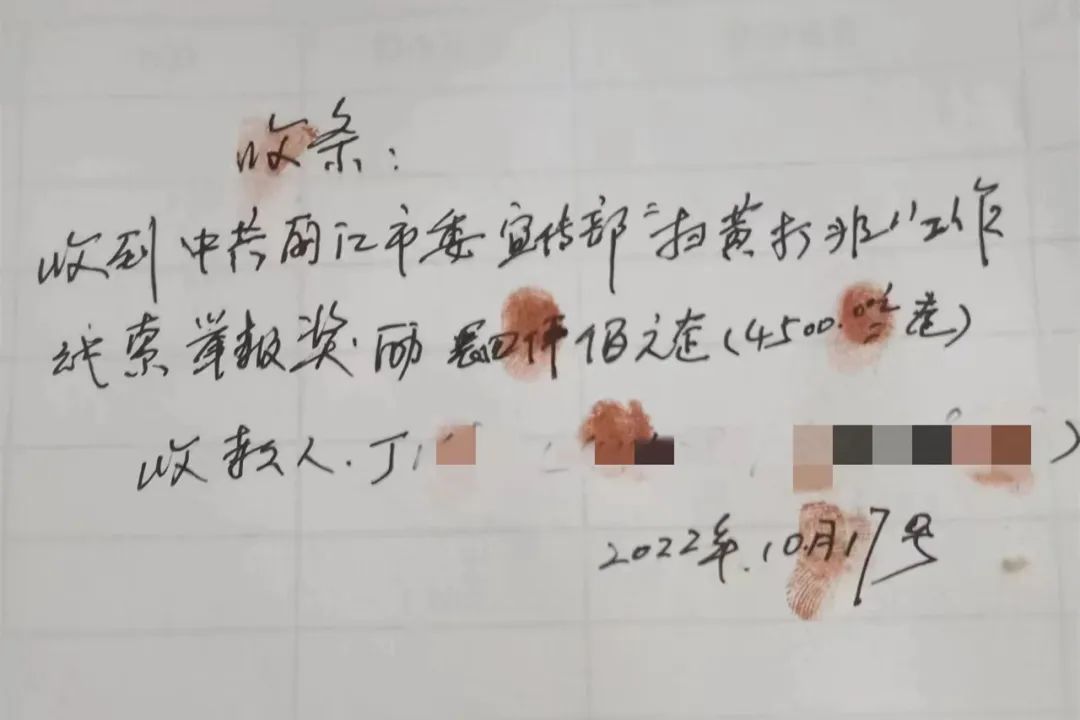 收条:
收到中共丽江市委宣传部"扫黄打非"工作
线索举报奖励 四仟伍佰元整(4500.00元整)
收款人.丁
2022年.10月17号